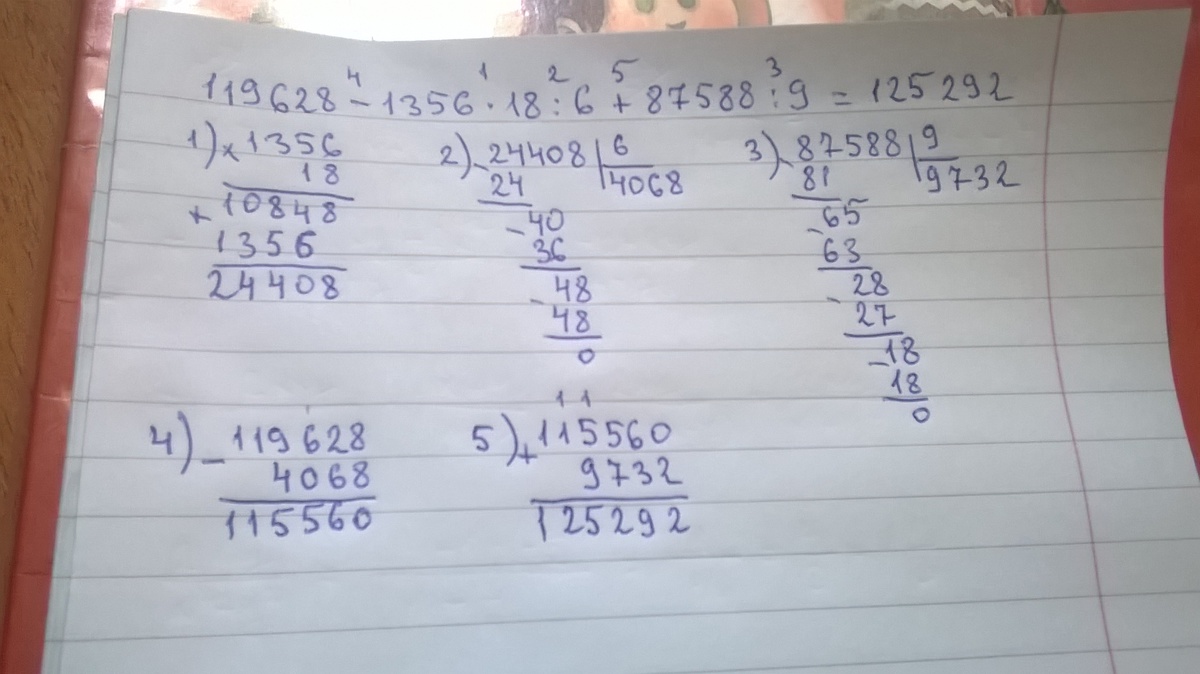 119628 - 1356 · 18 : 6 + 87588 : 9 = 125292
4 1 2 5 3
1) × 1356
18
+ 10848
1356
24408
2) - 24408 | 6
24 4068
- 40
36
- 48
48
0
3) - 87588 | 9
81 9732
- 65
63
- 28
27
- 18
18
0
4) - 119628
4068
115560
1 1
5) + 115560
9732
125292